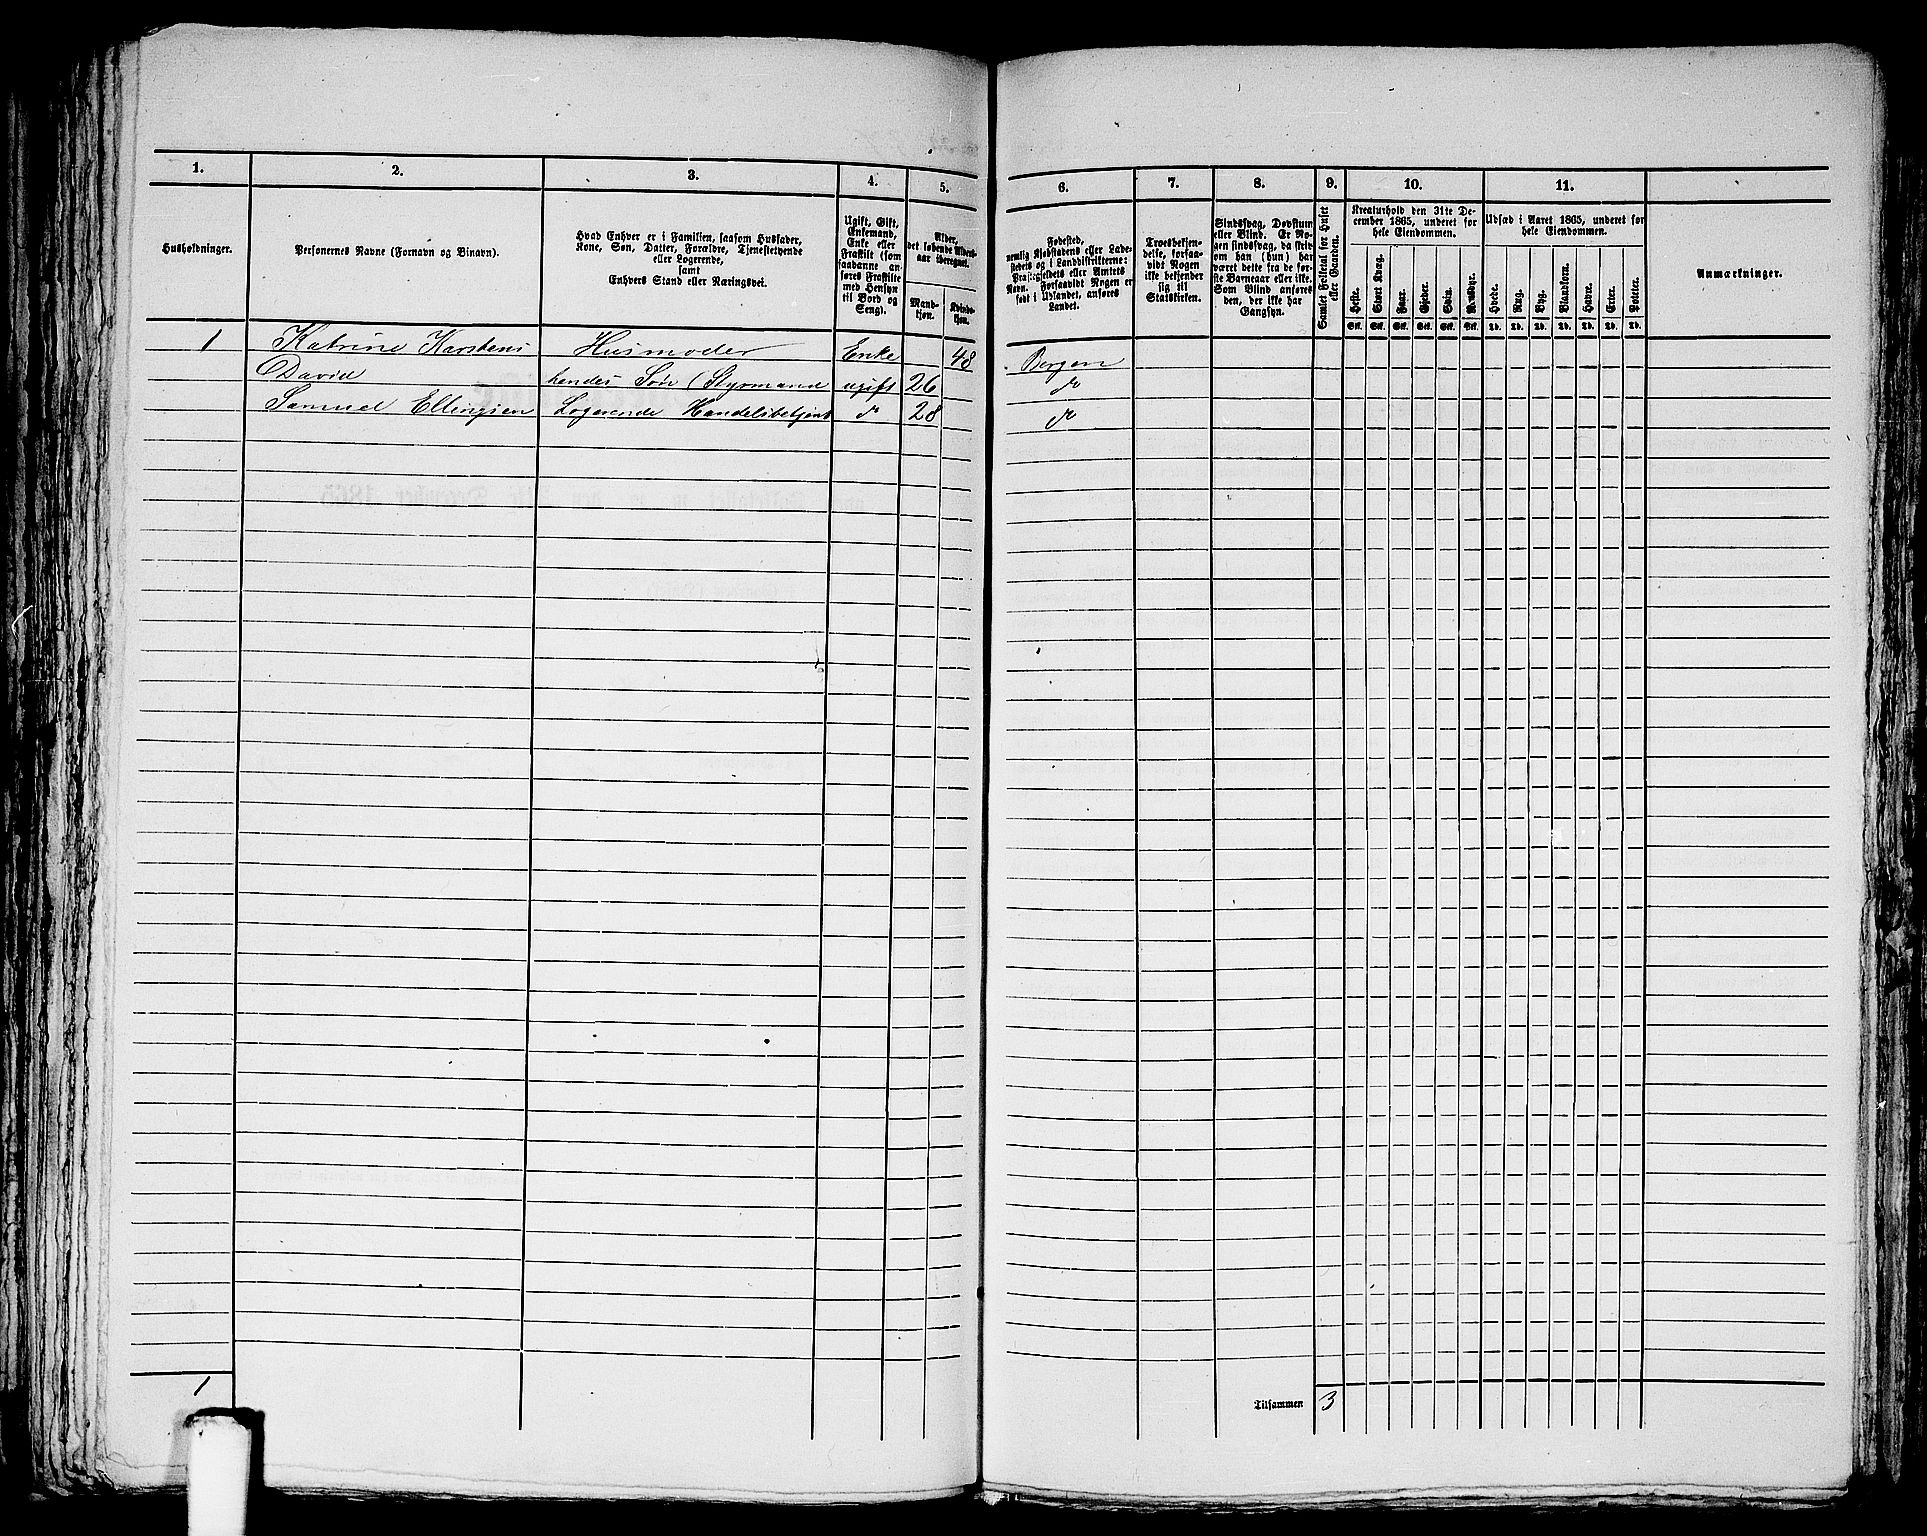 1. 2. 3. 4. 5. 6. 7. 8. 9. 10. 11.
Husholdninger.
Personernes Navne (Fornavn og Binavn).
Hvad Enhver er i Familien, saasom Husfader,
Kone, Søn, Datter, Forældre, Tjenestetyende
eller Logerende,
samt
Enhvers Stand eller Næringsvei.
Ugift, Gift,
Enkemand,
Enke eller
Fraskilt (som
saadanne an-
føres Fraskilte
med Hensyn
til Bord og
Seng).
Alder,
det løbende Alders-
aar iberegnet.
Mand-
kjøn.
Kvinde-
kjøn.
Fødested,
nemlig Kjøbstadens eller Lade-
stedets og i Landdistrikterne:
Præstegjeldets eller Amtets
Navn. Forsaavidt Nogen er
født i Udlandet, anføres
Landet.
Troesbekjen-
delse, forsaa-
vidt Nogen
ikke bekjender
sig til
Statskirken.
Sindssvag, Døvstum
eller Blind. Er No-
gen sindssvag, da skriv
om han (hun) har
været dette fra de før-
ste Barneaar eller ikke.
Som Blind anføres
den, der ikke har
Gangsyn.
Samlet Folketal for Huset
eller Gaarden.
Kreaturhold den 31te De-
cember 1865, underet for
hele Eiendommen.
Heste. Stort Kvæg. Faar. Gjeder. Svin. Rensdyr.
Stk. Stk. Stk. Stk. Stk. Stk.
Udsæd i Aaret 1865, underet for
hele Eiendommen.
Hvede. Rug. Byg. Blandkorn. Havre. Erter. Poteter.
Td. Td. Td. Td. Td. Td. Td.
Anmærkninger.
1 Katrine Karstens Husmoder Enke 48 Bergen
David hendes Søn (Styrmand ugift 26 do
Samuel Ellingsen Logerende Handelsbetjent do 28 do
1
Tilsammen 3